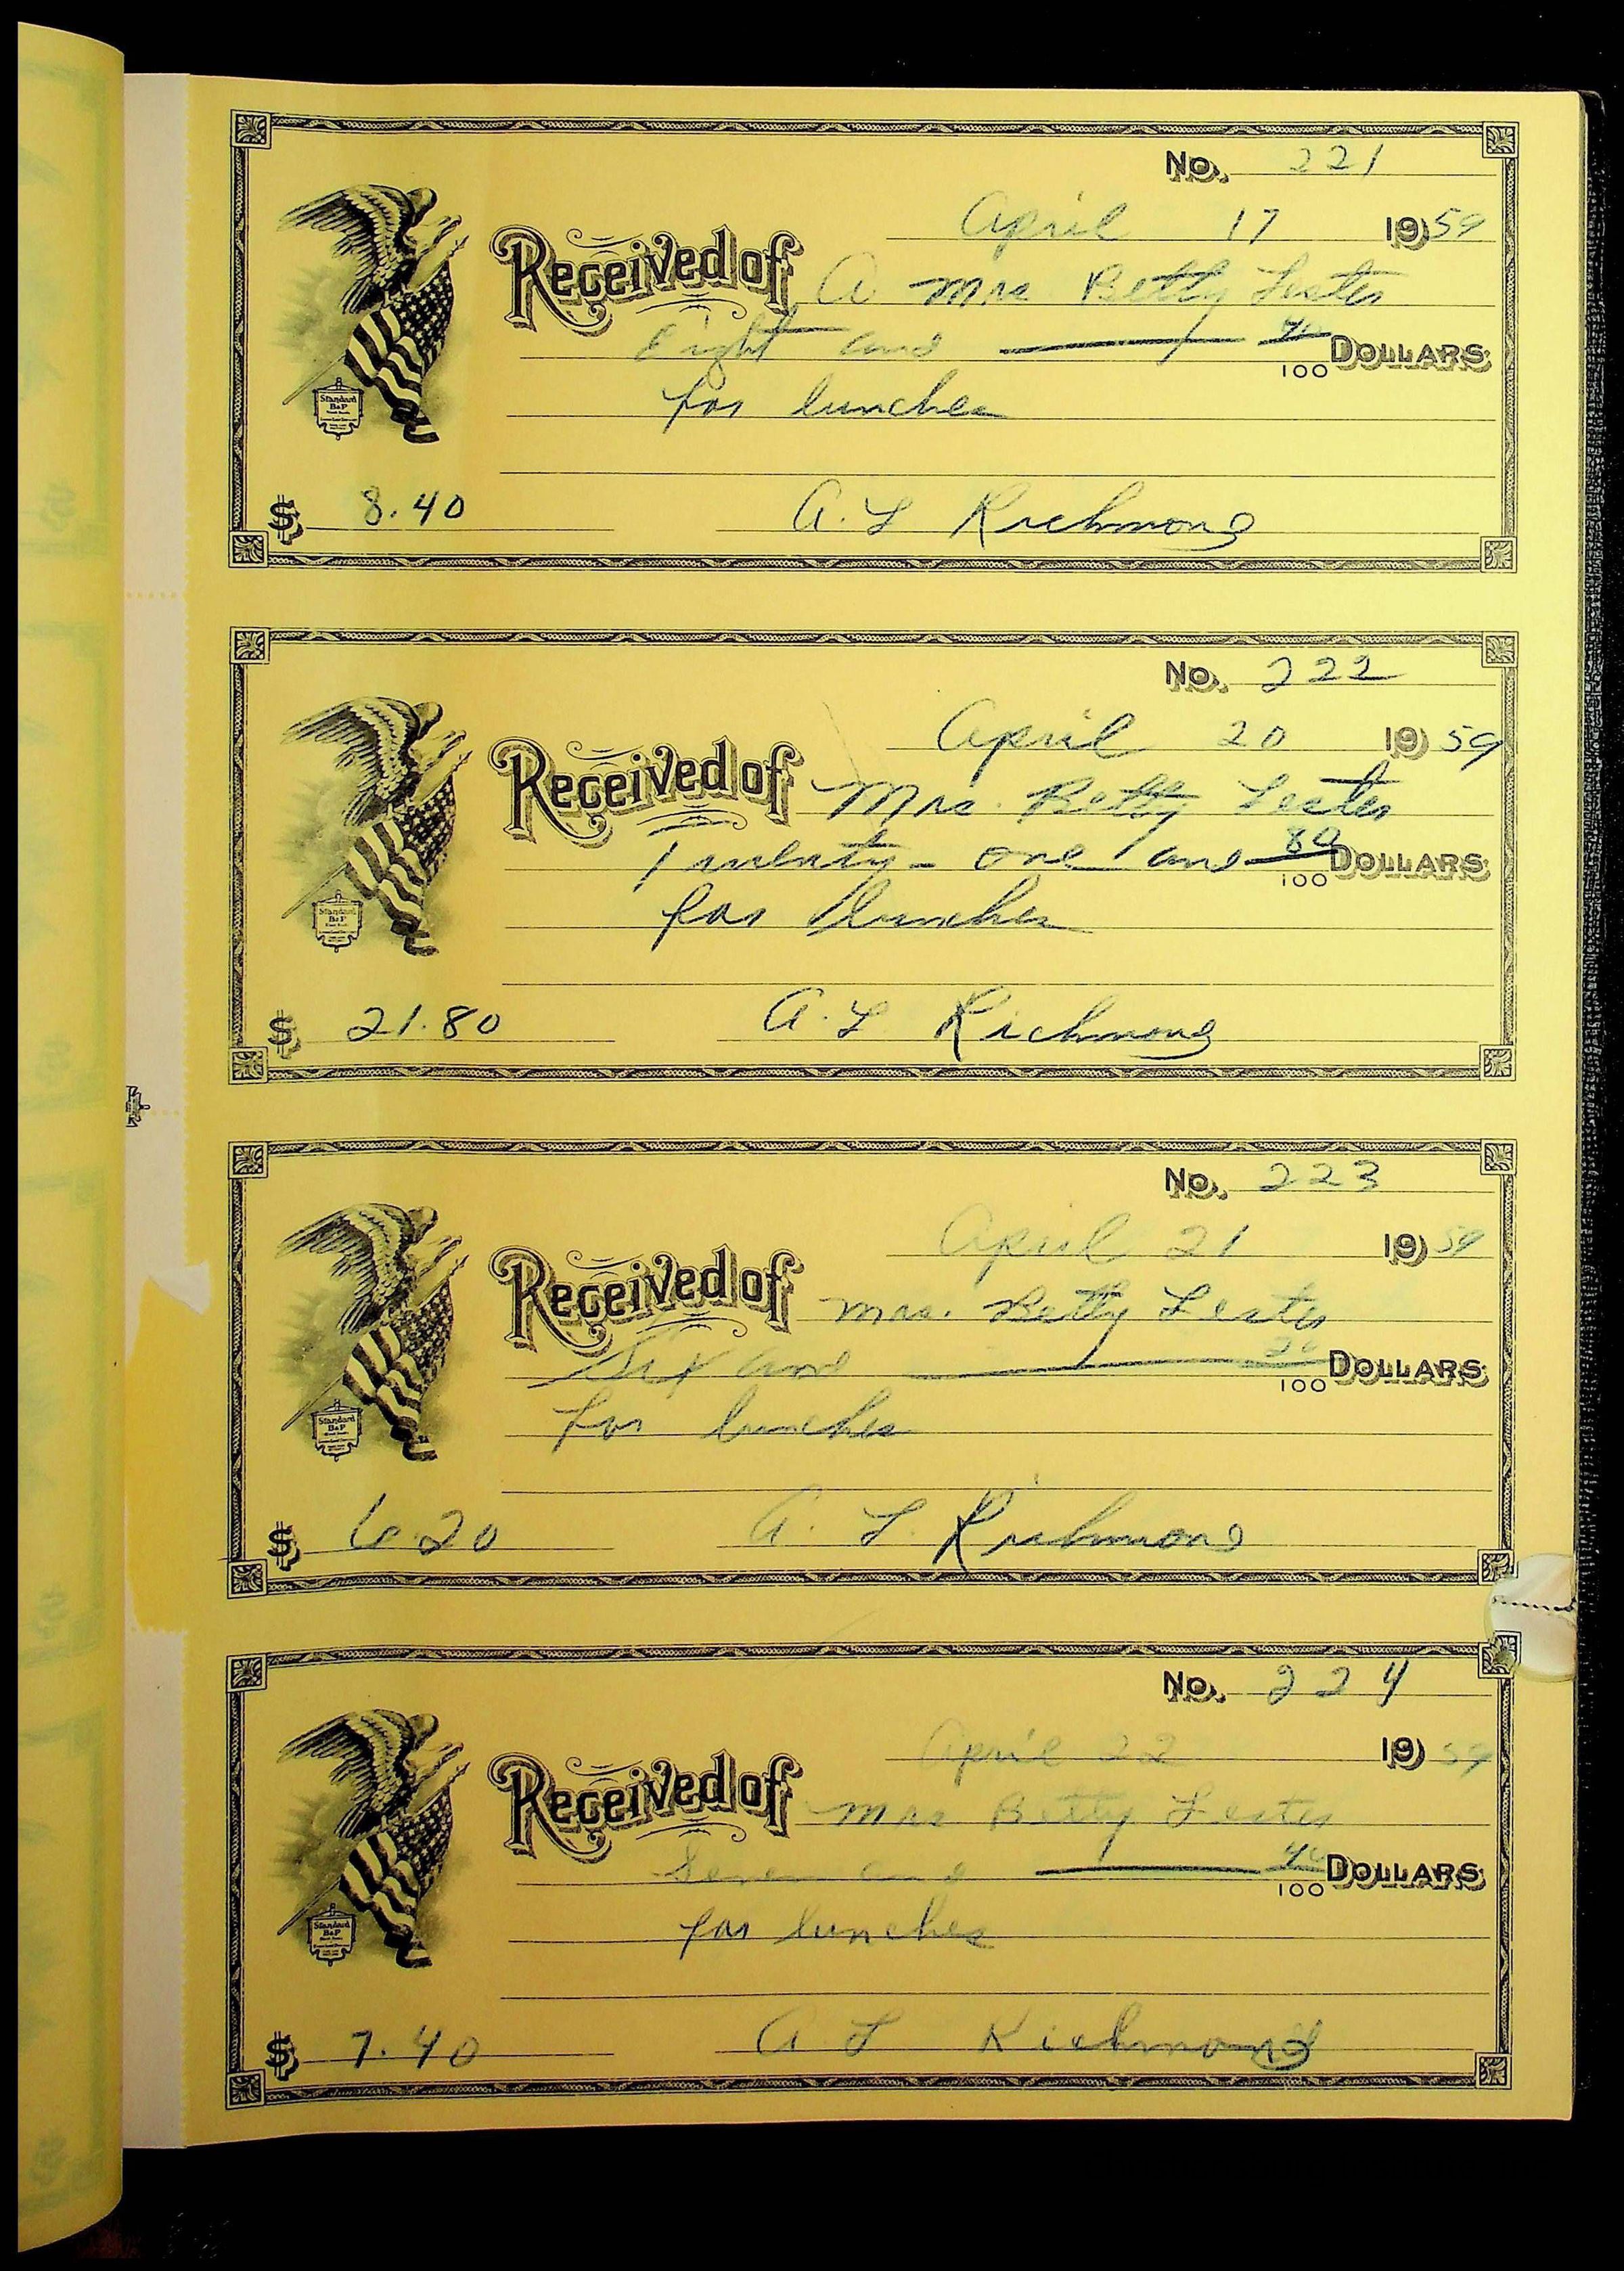 No. 221
April 17 1959
Received of A Mrs Betty Lester
Eight and 40/100 DOLLARS
for lunches
$ 8.40 A. L Richmond
Standard
B&P
No. 222
April 20 1959
Received of Mrs. Betty Lester
Twenty-one and 80/100 DOLLARS
for lunches
$ 21.80 A. L Richmond
Standard
B&P
No. 223
April 21 1959
Received of Mrs. Betty Lester
Six and 20/100 DOLLARS
for lunches
$ 6.20 A. L. Richmond
Standard
B&P
No. 224
April 22 1959
Received of Mrs Betty Lester
Seven and 40/100 DOLLARS
for lunches
$ 7.40 A L Richmond
Standard
B&P